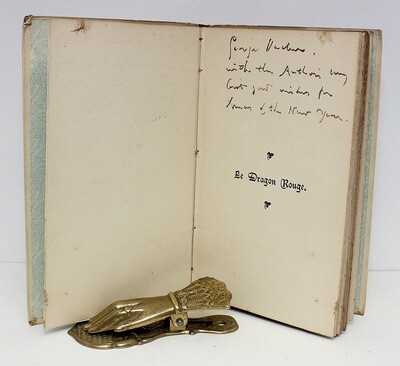 George
with the Author's very
best good wishes for
of the New Year.
Le Dragon Rouge.